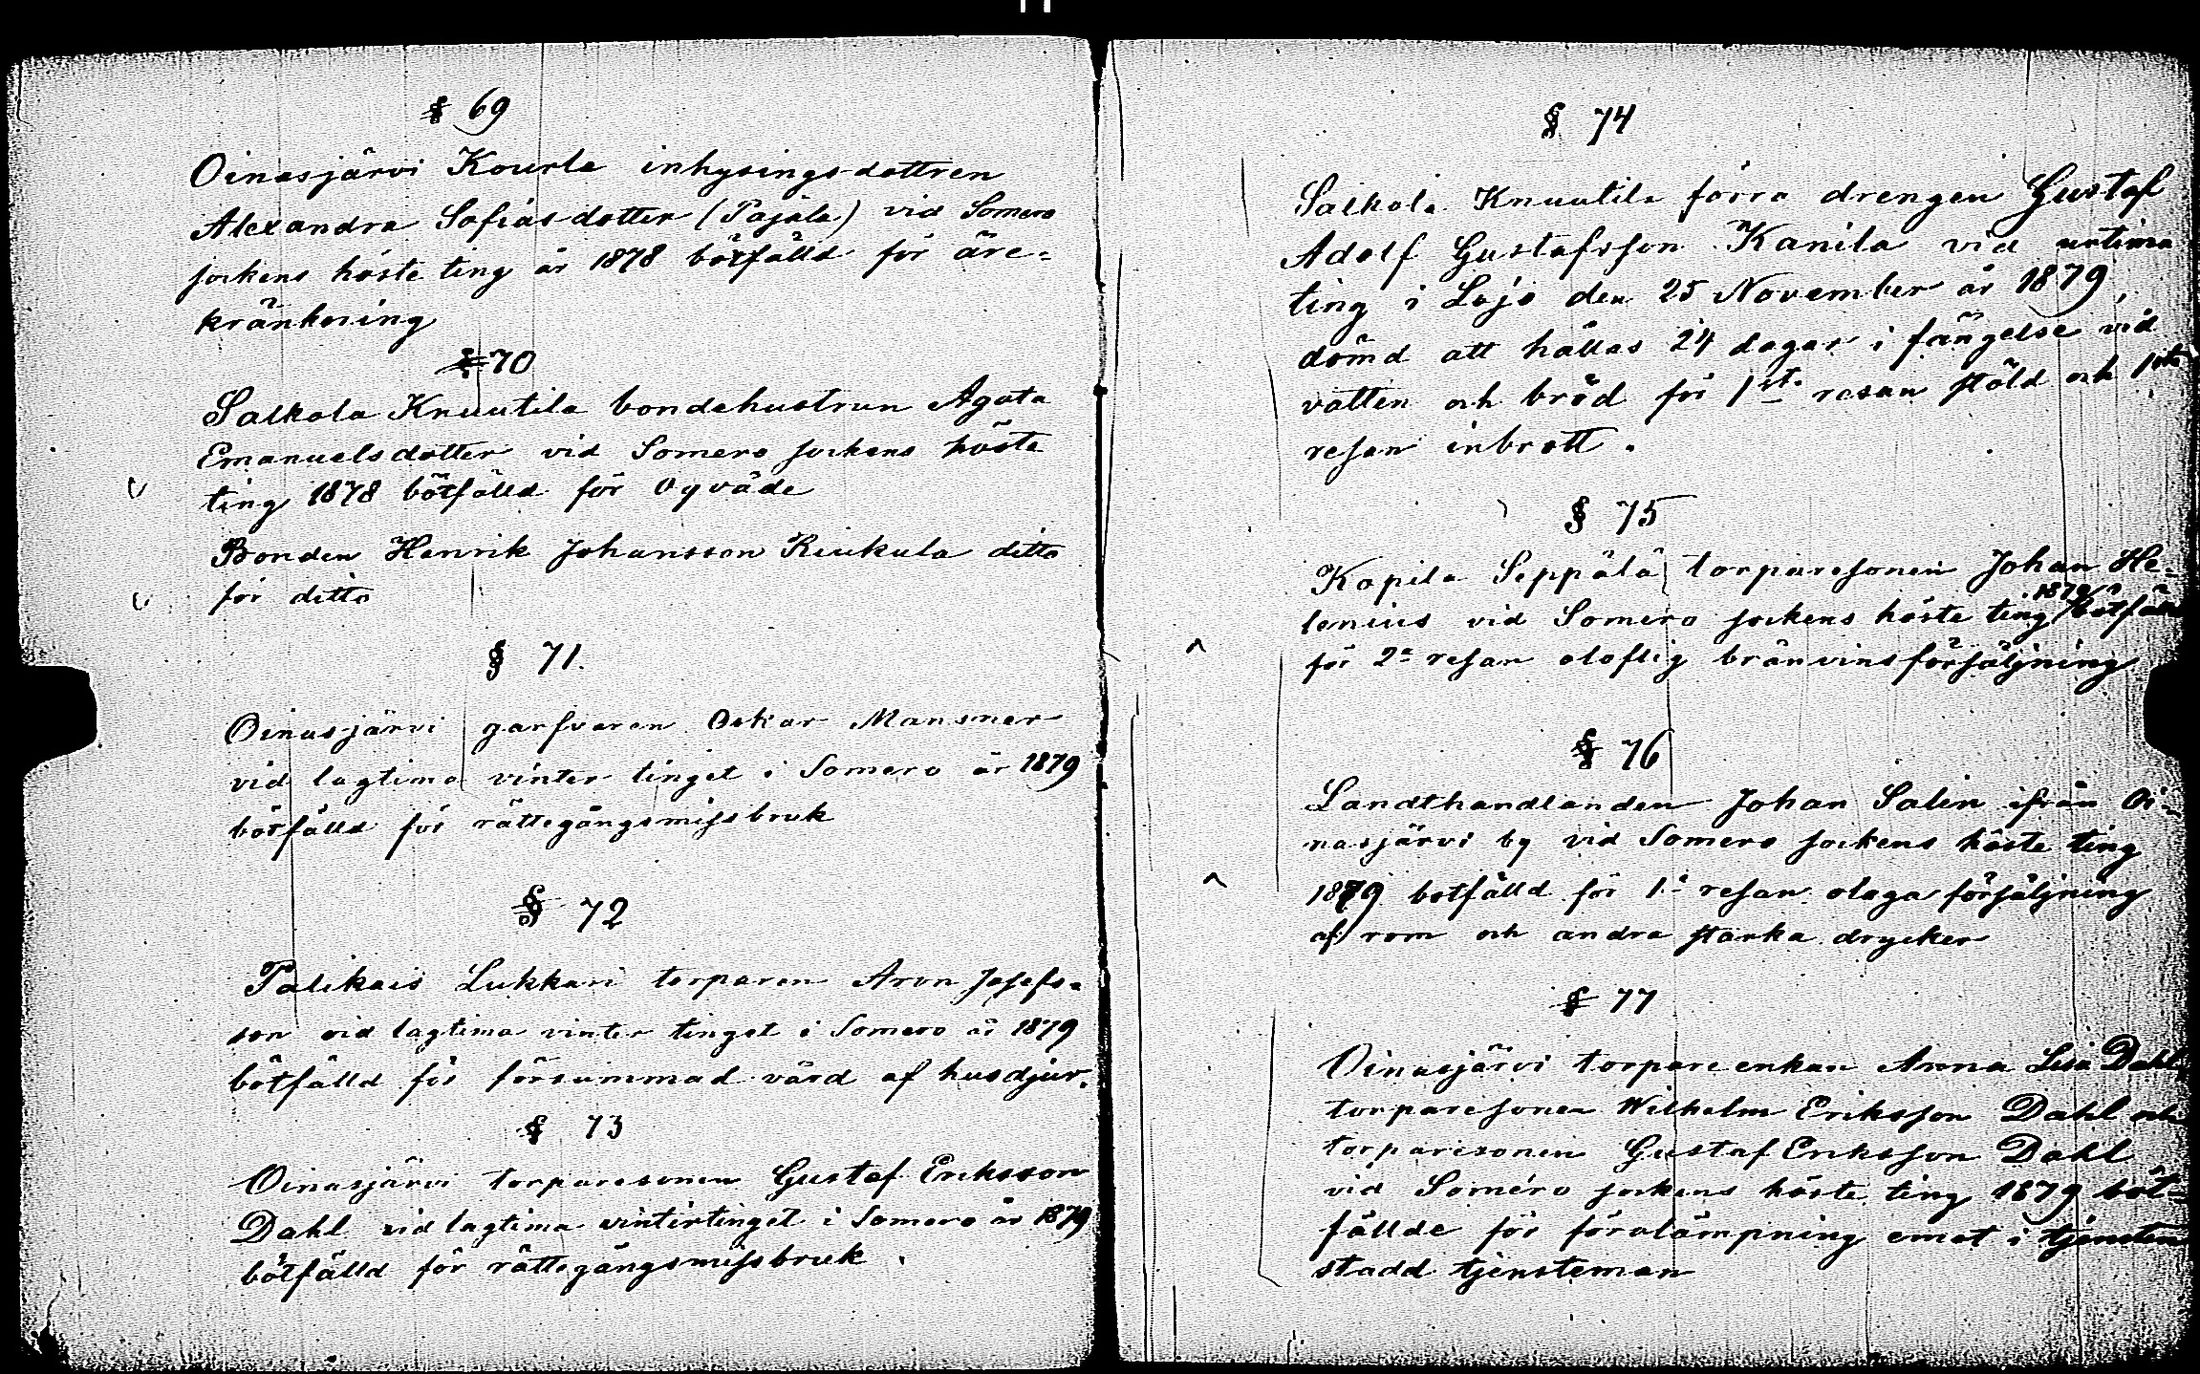 § 69
Oinasjärvi Kourla inhysingsdottren
Alexandra Sofiasdotter (Pajala) vid Somero
sockens höste ting år 1878 bötfälld för äre-
kränkning
§ 70
Salkola Knuutila bondehustrun Agata
Emanuelsdotter vid Somero sockens höste
ting 1878 bötfälld för oqväde
Bonden Henrik Johansson Kiukula ditto
för ditto
§ 71.
Oinasjärvi garfvaren Oskar Mansner
vid lagtima vinter tinget i Somero år 1879
bötfälld för rättegångsmissbruk
§ 72
Palikais Lukkari torparen Aron Josefs-
son vid lagtima vinter tinget i Somero år 1879
bötfälld för försummad vård af husdjur.
§ 73
Oinasjärvi torparesonen Gustaf Eriksson
Dahl vid lagtima vintertinget i Somero år 1879
bötfälld för rättegångsmissbruk.
§ 74
Salkola Knuutila förra drengen Gustaf
Adolf Gustafsson Kanila vid urtima
ting i Lojo den 25 November år 1879,
dömd att hållas 24 dagar i fängelse vid
vatten och bröd för 1sta resan stöld och 1sta
resan inbrott.
§ 75
Kopila Seppälä torparesonen Johan He-
lenius vid Somero sockens höste ting 1879 bötfälld
för 2a resan oloflig bränvinsförsäljning
§ 76
Landthandlanden Johan Salin ifrån Oi-
nasjärvi by vid Somero sockens höste ting
1879 botfälld för 1a resan olaga försäljning
af rom och andra starka drycker
§ 77
Oinasjärvi torpareenkan Anna Lisa Dahl,
torparesonen Wilhelm Eriksson Dahl och
torparesonen Gustaf Eriksson Dahl
vid Somero sockens höste ting 1879 böt-
fällde för förolämpning emot i tjensten
stadd tjensteman